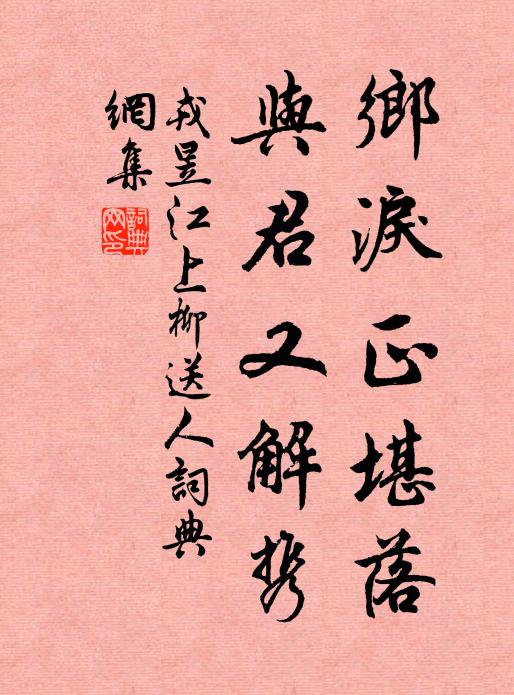 鄉淚正堪落
與君又解携
戎昱江上柳送人詞典
網集
詞典
网印